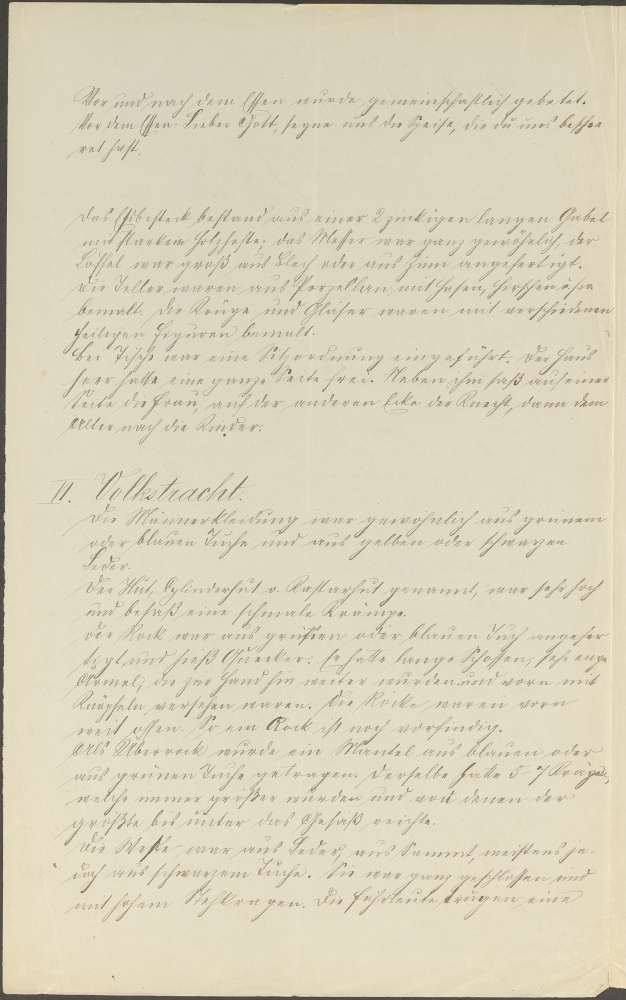 Vor und nach dem Essen wurde gemeinschaftlich gebetet.
Vor dem Essen: Lieber Gott, segne uns die Speise, die du uns beschee
ret hast.
Das Eßbesteck bestand aus einer 2 zinkigen langen Gabel
mit starkem Holzhefte; das Messer war ganz gewöhnlich, der
Löffel war groß aus Blech oder aus Zinn angefertigt.
Die Teller waren aus Porzellan mit Hasen, Hirschen
bemalt. Die Krüge und Gläser waren mit verschiedenen
heiligen Figuren bemalt.
Bei Tische war eine Sitzordnung eingeführt. Der Haus
herr hatte eine ganze Seite frei. Neben ihm saß auf einer
Seite die Frau, auf der anderen Ecke der Knecht, dann dem
Alter nach die Kinder.
II. Volkstracht.
Die Männerkleidung war gewöhnlich aus grünem
oder blauen Tuche und aus gelben oder schwarzen
Leder.
Der Hut, Cylinderhut o. Kastarhut genannt, war sehr hoch
und besaß eine schmale Krämpe.
Der Rock war aus grünen oder blauen Tuch angefer
tigt und hieß Quecker. Er hatte lange Schossen, sehr enge
Ärmel, die zur Hand hin weiter wurden und vorn mit
Knöpfeln versehen waren. Die Röcke waren vorn
weit offen. So ein Rock ist noch vorfindig.
Als Überrock wurde ein Mantel aus blauen oder
aus grünen Tuche getragen. Derselbe hatte 5-7 Krägen,
welche immer größer wurden und von denen der
größte bis unter das Gesäß reichte.
Die Weste war aus Leder, aus Sammt, meistens je-
doch aus schwarzem Tuche. Sie war ganz geschlossen und
mit hohem Stehkragen. Die Fuhrleute trugen eine